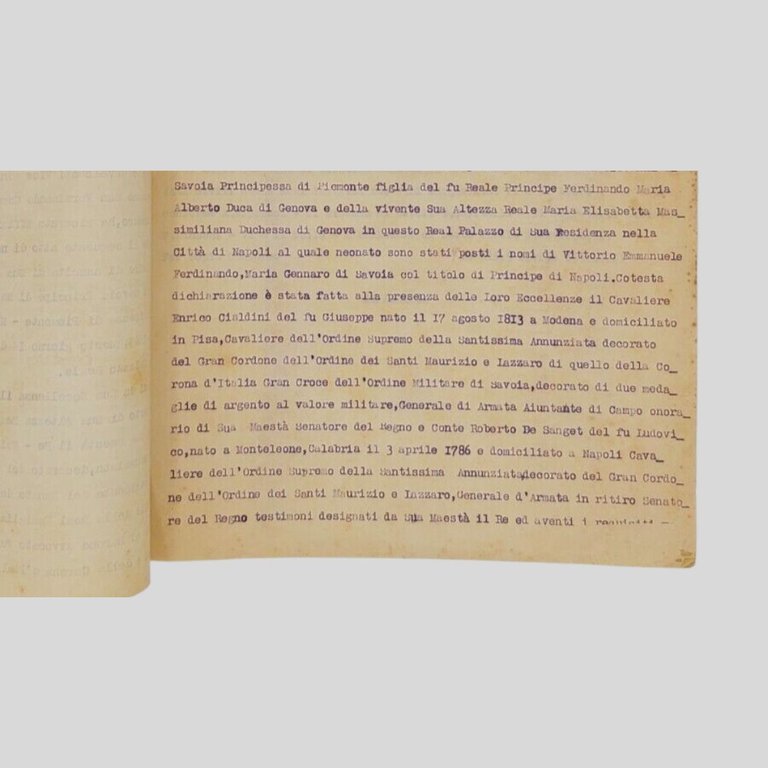 Savoia Principessa di Piemonte figlia del fu Reale Principe Ferdinando Maria
Alberto Duca di Genova e della vivente Sua Altezza Reale Maria Elisabetta Mas_
similiana Duchessa di Genova in questo Real Palazzo di Sua Residenza nella
Città di Napoli al quale neonato sono stati posti i nomi di Vittorio Emmanuele
Ferdinando,Maria Gennaro di Savoia col titolo di Principe di Napoli.Cotesta
dichiarazione è stata fatta alla presenza delle Loro Eccellenze il Cavaliere
Enrico Cialdini del fu Giuseppe nato il 17 agosto 1813 a Modena e domiciliato
in Pisa,Cavaliere dell'Ordine Supremo della Santissima Annunziata decorato
del Gran Cordone dell'Ordine dei Santi Maurizio e Lazzaro di quello della Co_
rona d'Italia Gran Croce dell'Ordine Militare di Savoia,decorato di due meda_
glie di argento al valore militare,Generale di Armata Aiuntante di Campo onora_
rio di Sua Maestà Senatore del Regno e Conte Roberto De Sanget del fu Ludovi_
co,nato a Monteleone,Calabria il 3 aprile 1786 e domiciliato a Napoli Cava_
liere dell'Ordine Supremo della Santissima Annunziata,decorato del Gran Cordo_
ne dell'Ordine dei Santi Maurizio e Lazzaro,Generale d'Armata in ritiro Senato_
re del Regno testimoni designati da Sua Maestà il Re ed aventi i requisiti –